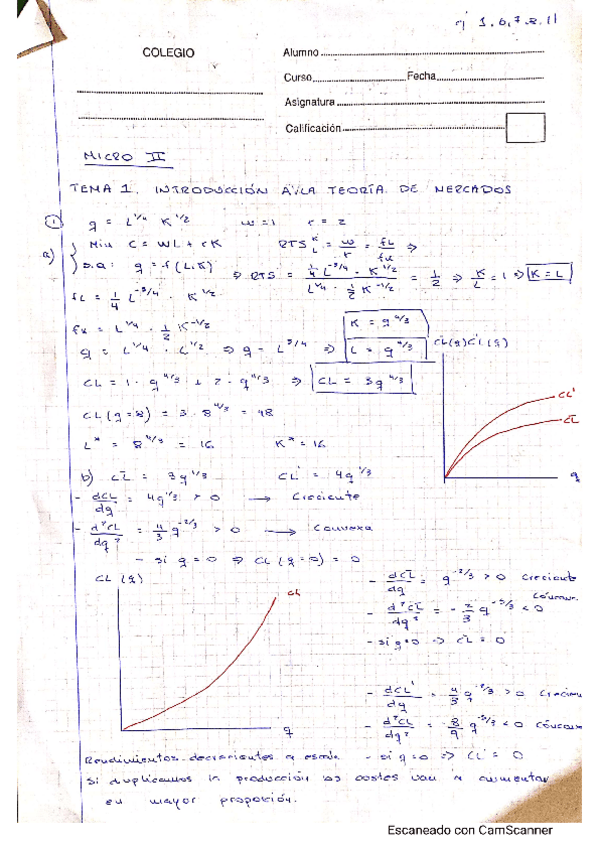 ej 1.6,7.8.11
COLEGIO
Alumno
Curso Fecha
Asignatura
Calificación
MICRO II
TEMA 1. INTRODUCCIÓN A LA TEORÍA DE MERCADOS
① q = L^1/4 K^1/2 w=1 r=2
a) { Min C = WL + rK RTS^K_L = w/r = fL/fK ⇒
s.a: q = f(L,K) ⇒ RTS = (1/4 L^-3/4 · K^1/2)/(L^1/4 · 1/2 K^-1/2) = 1/2 ⇒ K/L = 1 ⇒ K = L
fL = 1/4 L^-3/4 · K^1/2
fK = L^1/4 · 1/2 K^-1/2
q = L^1/4 · L^1/2 ⇒ q = L^3/4 ⇒ K = q^4/3 L = q^4/3
CL(q) CL'(q)
CL = 1 · q^4/3 + 2 · q^4/3 ⇒ CL = 3q^4/3
CL'
CL(q=8) = 3 · 8^4/3 = 48
CL
L* = 8^4/3 = 16 K* = 16
q
b) CL = 3q^1/3 CL' = 4q^1/3
- dCL/dq = 4q^1/3 > 0 → Creciente
- d²CL/dq² = 4/3 q^-2/3 > 0 → Convexa
- si q=0 ⇒ CL(q=0) = 0
CL(q)
CL
q
- dCL/dq = q^-2/3 > 0 creciente
- d²CL/dq² = -2/3 q^-5/3 < 0
- si q=0 ⇒ CL = 0
- dCL'/dq = 4/3 q^-2/3 > 0
- d²CL/dq² = -8/9 q^-5/3 < 0
- si q=0 ⇒ CL' = 0
Rendimientos decrecientes a escala
Si duplicamos la producción los costes van a aumentar
en mayor proporción.
Escaneado con CamScanner